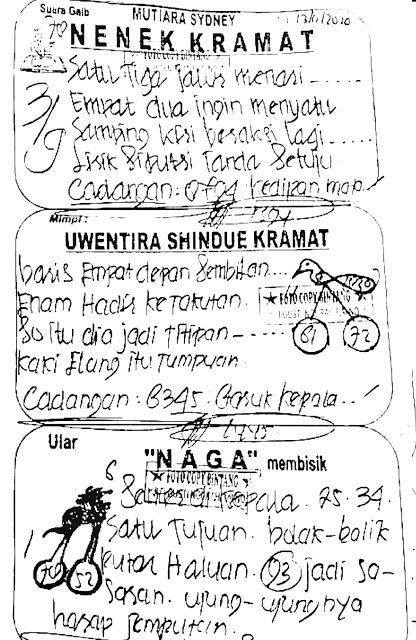 Suara Gaib MUTIARA SYDNEY 13/11/2010
NENEK KRAMAT
FOTO COPY BINTANG
Satu Tiga jalus menasi ......
3/9 Empat dua ingin menyatu.
Samping kisi besakei lagi .....
Lisik Situtsi Tanda Setuju.
Cadangan: 0704 kedipan map.
Mimpi:
UWENTIRA SHINDUE KRAMAT
basis Empat depan Sembilan....
Enam Hadir ketakutan.
FOTO COPY BINTANG
80 itu dia jadi Titipan ------
61 72
kaki Elang itu Tumpuan.
Cadangan: 6345. Gasuk kepala..
Ular
"NAGA" membisik
FOTO COPY BINTANG
6
di kepala. 25.34.
Satu Tujuan. bolak-balik
putar Haluan. 93 jadi Sa-
70 52
Sasan. ujung-ujungnya
harap Jemputan.